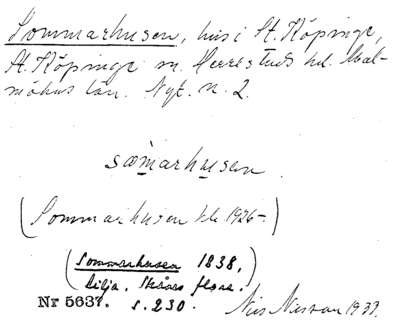 Sommarhusen, hus i St. Köpinge,
St. Köpinge sn. Herrestads hd. Mal-
möhus län. Nyt. n. 2.
sæmarhusen
(Sommarhusen kb. 1926-)
(Sommarhusen 1838,
Lilja. Skånes flora.
Nr 5637. s. 230.
Nils Nilsson 1933.